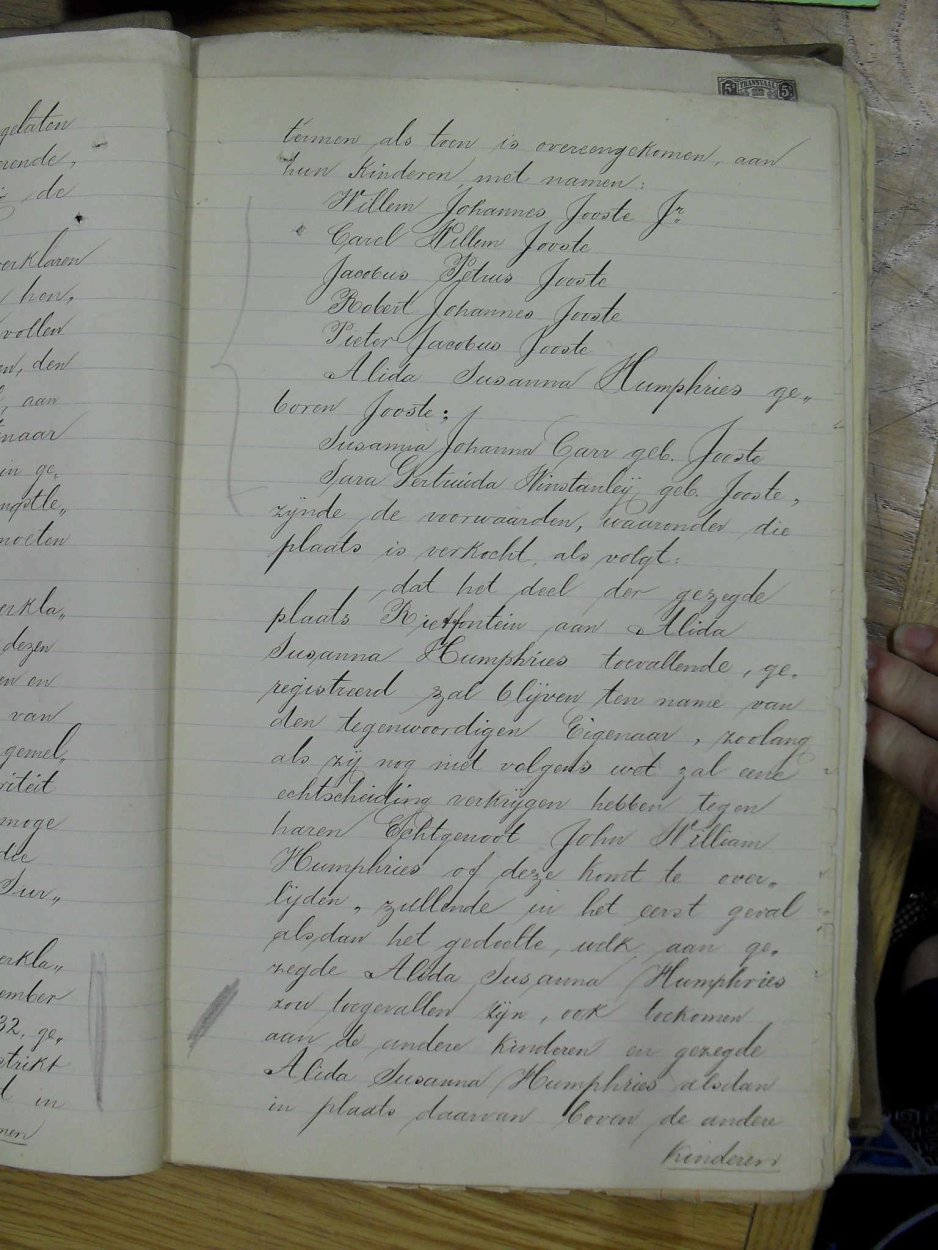 gelaten
de
erklaren
hen,
vollen
en, den
aan
naar
in ge„
ngstle„
moeten
erkla„
dezen
en en
van
gemel„
riteit
moge
die
Sur„
erkla„
ember
32, ge„
strikt
in
nen
5/ TRANSVAAL 5/
termen als toen is overeengekomen, aan
hun Kinderen, met namen:
Willem Johannes Jooste Jr.
Carel Willem Jooste
Jacobus Petrus Jooste
Robert Johannes Jooste
Pieter Jacobus Jooste
Alida Susanna Humphries ge„
boren Jooste;
Susanna Johanna Carr geb. Jooste
Sara Gertruida Winstanleÿ geb. Jooste,
zijnde de voorwaarden, waaronder die
plaats is verkocht, als volgt:
dat het deel der gezegde
plaats Rietfontein aan Alida
Susanna Humphries toevallende, ge„
registreerd zal blijven ten name van
den tegenwoordigen Eigenaar, zoolang
als zij nog niet volgens wet zal eene
echtscheiding verkrijgen hebben tegen
haren Echtgenoot John William
Humphries of deze komt te over„
lijden, zullende in het eerst geval
alsdan het gedeelte, welk aan ge„
zegde Alida Susanna Humphries
zou toegevallen zijn, ook toekomen
aan de andere Kinderen en gezegde
Alida Susanna Humphries alsdan
in plaats daarvan boven de andere
Kinderen